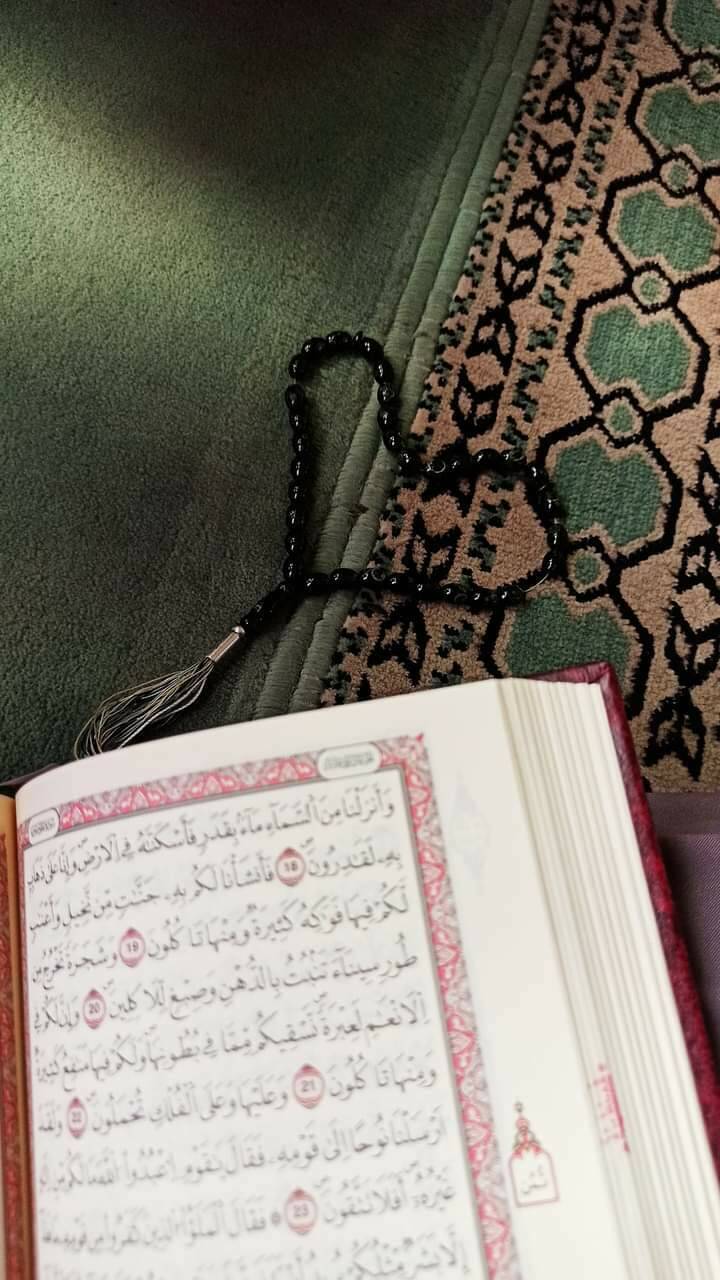 وَأَنزَلْنَا مِنَ اَ۬لسَّمَآءِ مَآءَۢ بِقَدَرٖ فَأَسْكَنَّٰهُ فِے اِ۬لَارْضِ وَإِنَّا عَلَىٰ ذَهَابِۢ
بِهِۦ لَقَٰدِرُونَ 18 فَأَنشَأْنَا لَكُم بِهِۦ جَنَّٰتٖ مِّن نَّخِيلٖ وَأَعْنَٰبٖ
لَّكُمْ فِيهَا فَوَٰكِهُ كَثِيرَةٞ وَمِنْهَا تَاكُلُونَ 19 وَشَجَرَةٗ تَخْرُجُ مِن
طُورِ سِينَآءَ تَنۢبُتُ بِالدُّهْنِ وَصِبْغٖ لِّلَاكِلِينَ 20 وَإِنَّ لَكُمْ فِے
اِ۬لَانْعَٰمِ لَعِبْرَةٗ نَّسْقِيكُم مِّمَّا فِے بُطُونِهَا وَلَكُمْ فِيهَا مَنَٰفِعُ كَثِيرَةٞ
وَمِنْهَا تَاكُلُونَ 21 وَعَلَيْهَا وَعَلَى اَ۬لْفُلْكِ تُحْمَلُونَ 22 وَلَقَدَ
اَرْسَلْنَا نُوحاً اِلَىٰ قَوْمِهِۦ فَقَالَ يَٰقَوْمِ اِ۟عْبُدُواْ اُ۬للَّهَ مَا لَكُم مِّنِ اِلَٰهٍ
غَيْرُهُۥٓ أَفَلَا تَتَّقُونَ 23 ۞ فَقَالَ اَ۬لْمَلَؤُاْ اُ۬لذِينَ كَفَرُواْ مِن قَوْمِهِۦ مَا هَٰذَآ
إِلَّا بَشَرٞ مِّثْلُكُمْ
ثمن